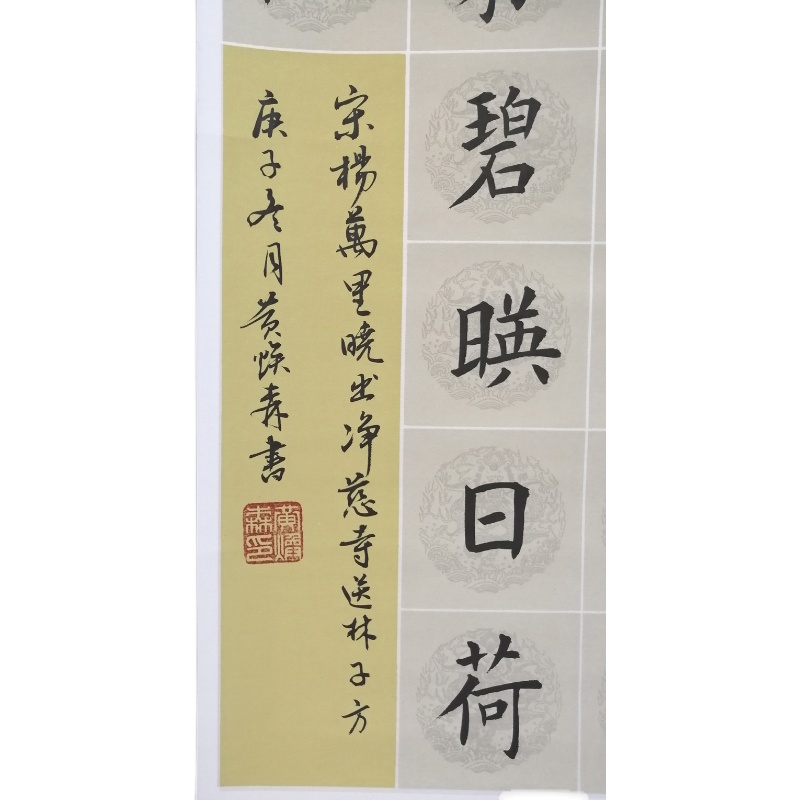 碧暎日荷
宋楊萬里曉出净慈寺送林子方
庚子冬月黄焕森書
黄焕森印